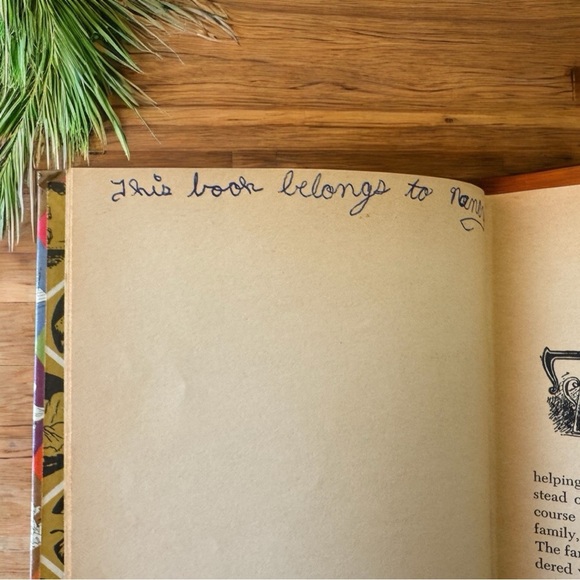 This book belongs to Nancy
helping
stead
course
family,
The
dered